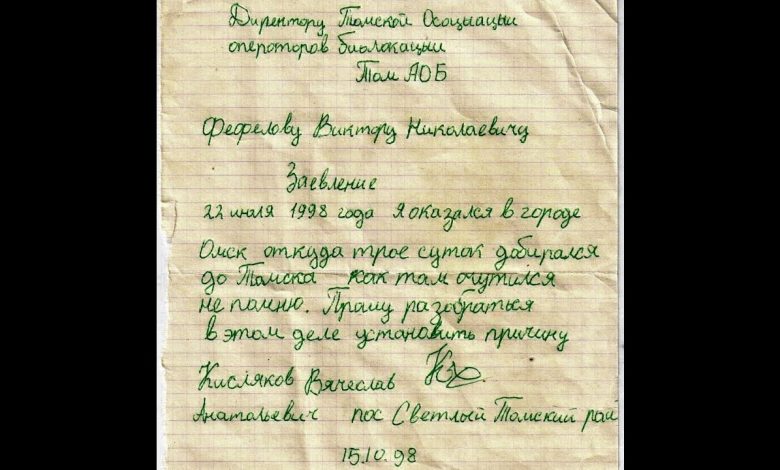 Директору Томской Осоцыацыи
операторов биолокацыи
Том АОБ
Фефелову Виктору Николаевичу
Заевление
22 июля 1998 года я оказался в городе
Омск откуда трое суток добирался
до Томска как там очутился
не помню. Прашу разобраться
в этом деле установить причину
Кисляков Вячеслав
Анатальевич пос Светлый Томский рай
15.10.98